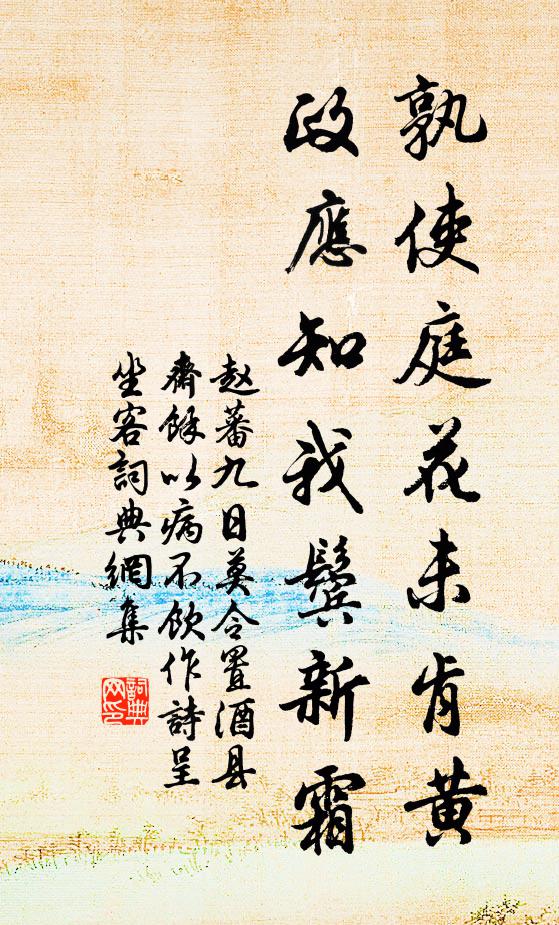 孰使庭花未肯黄
政應知我鬓新霜
赵蕃九日莫令置酒县
齋餘以病不飲作詩呈
坐客詞典網集
詞典
网印